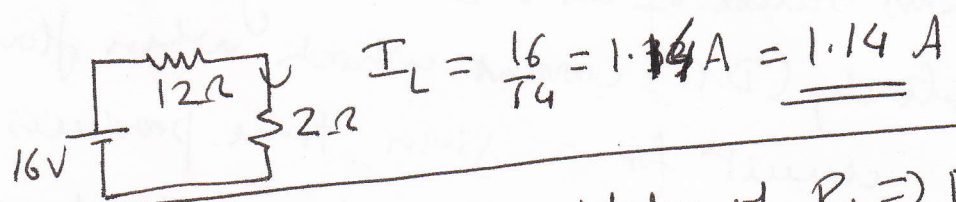 12Ω
2Ω
16V
I_L = 16/14 = 1.14 A = 1.14 A